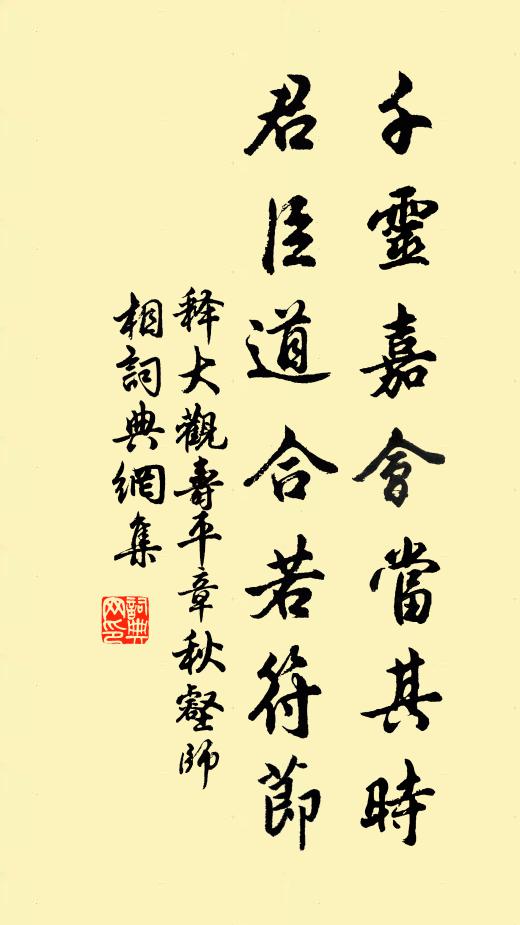 千靈嘉會當其時
君臣道合若符節
释大觀壽平章秋壑師
相詞典網集
詞典
网印